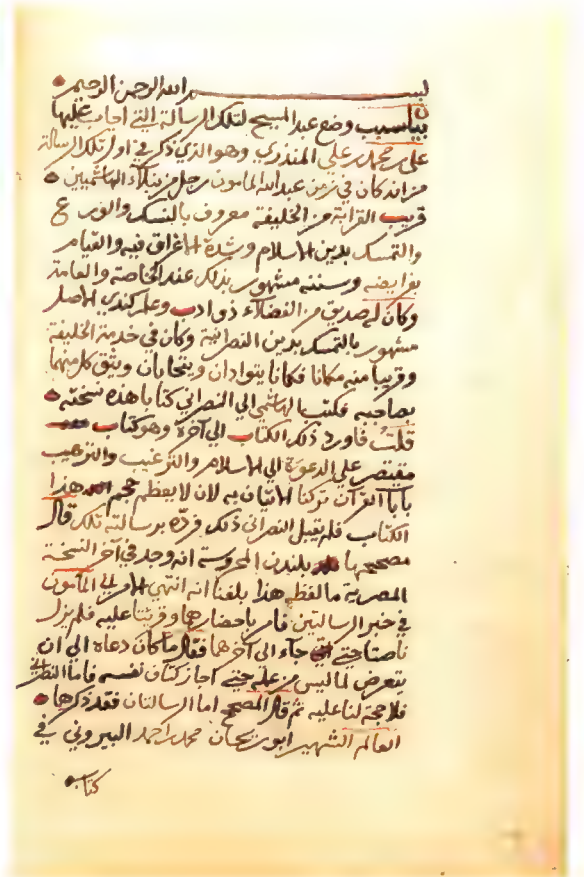 بسم الله الرحمن الرحيم
بيان سبب وضع عبد المسيح لتلك الرسالة التي اجاب عليها
علي بن محمد بن علي المنذري وهو الذي ذكر في اول تلك الرسالة
من انه كان في زمن عبد الله المامون رجل من نبلآء الهاشميين
قريب القرابة من الخليفة معروف بالنسك والورع
والتمسك بدين الاسلام وشدة الاغراق فيه والقيام
بفرايضه وسننه مشهور بذلك عند الخاصة والعامة
وكان له صديق من الفضلآء ذو ادب وعلم كندي الاصل
مشهور بالتمسك بدين النصرانية وكان في خدمة الخليفة
وقريبا منه مكانا فكانا يتوادان ويتحابان ويثق كل منهما
بصاحبه فكتب الهاشمي الي النصراني كتابا هذه نسخته
قلت فاورد ذلك الكتاب الي آخره وهو كتاب
مقتصر علي الدعوة الي الاسلام والترغيب والترهيب
بآيات القرآن تركنا الاتيان به لان لا يعظم حجم هذا
الكتاب فلم يقبل النصراني ذلك فرده برسالته تلك قال
مصححها بلندن المحروسة انه وجد في آخر النسخة
المصرية ما لفظه هذا بلغنا انه انتهي الامر الي المأمون
في خبر الرسالتين فامر باحضارهما وقريتا عليه فلم يزل
ناصتا حتي جآء الي آخرها فقال ما كان دعاه الي ان
يتعرض لما ليس من عمله حتي اجاز كتان نفسه فاما النصراني
فلا حجة لنا عليه ثم قال المصحح اما الرسالتان فقد ذكرها
العالم الشهير ابو ريحان محمد بن احمد البيروني في
كتابه